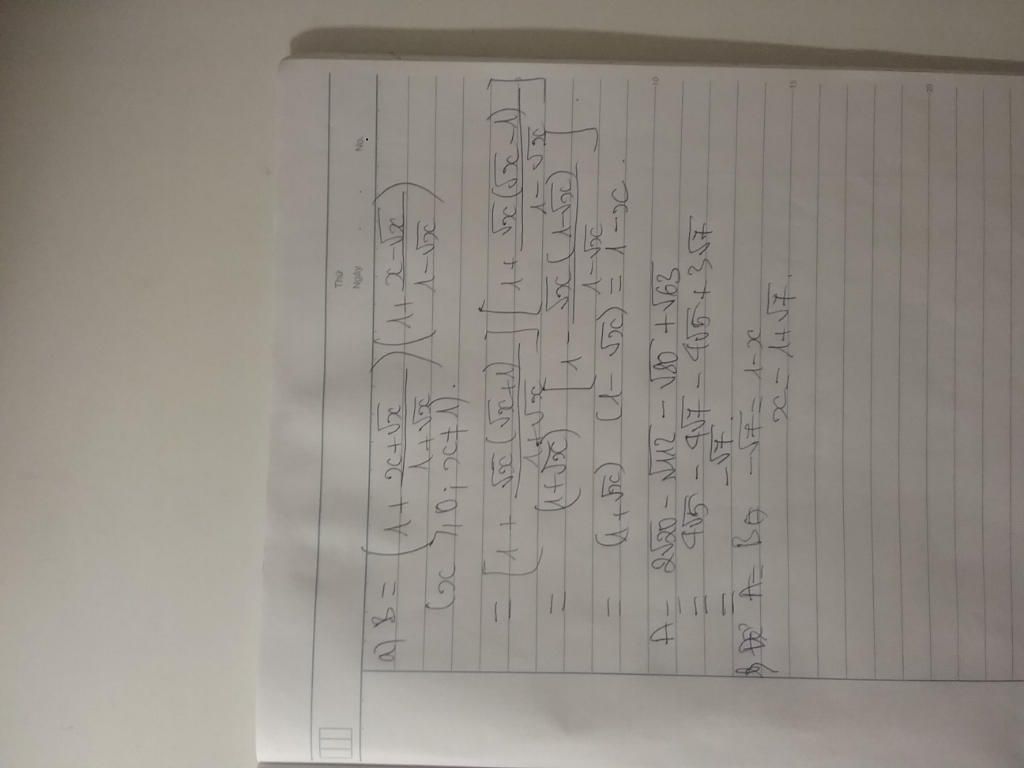 Thứ
Ngày No.
a) B = (1 + (x+√x)/(1+√x)) (1 + (x-√x)/(1-√x))
(x ≥ 0; x ≠ 1).
= [1 + √x(√x+1)/(1+√x)] [1 + √x(√x-1)/(1-√x)]
= (1+√x) [1 - √x(1-√x)/(1-√x)]
= (1+√x) (1-√x) = 1-x.
A = 2√20 - √112 - √80 + √63
= 4√5 - 4√7 - 4√5 + 3√7
= -√7
b) A = B ⇔ -√7 = 1-x
x = 1+√7.
10
15
20